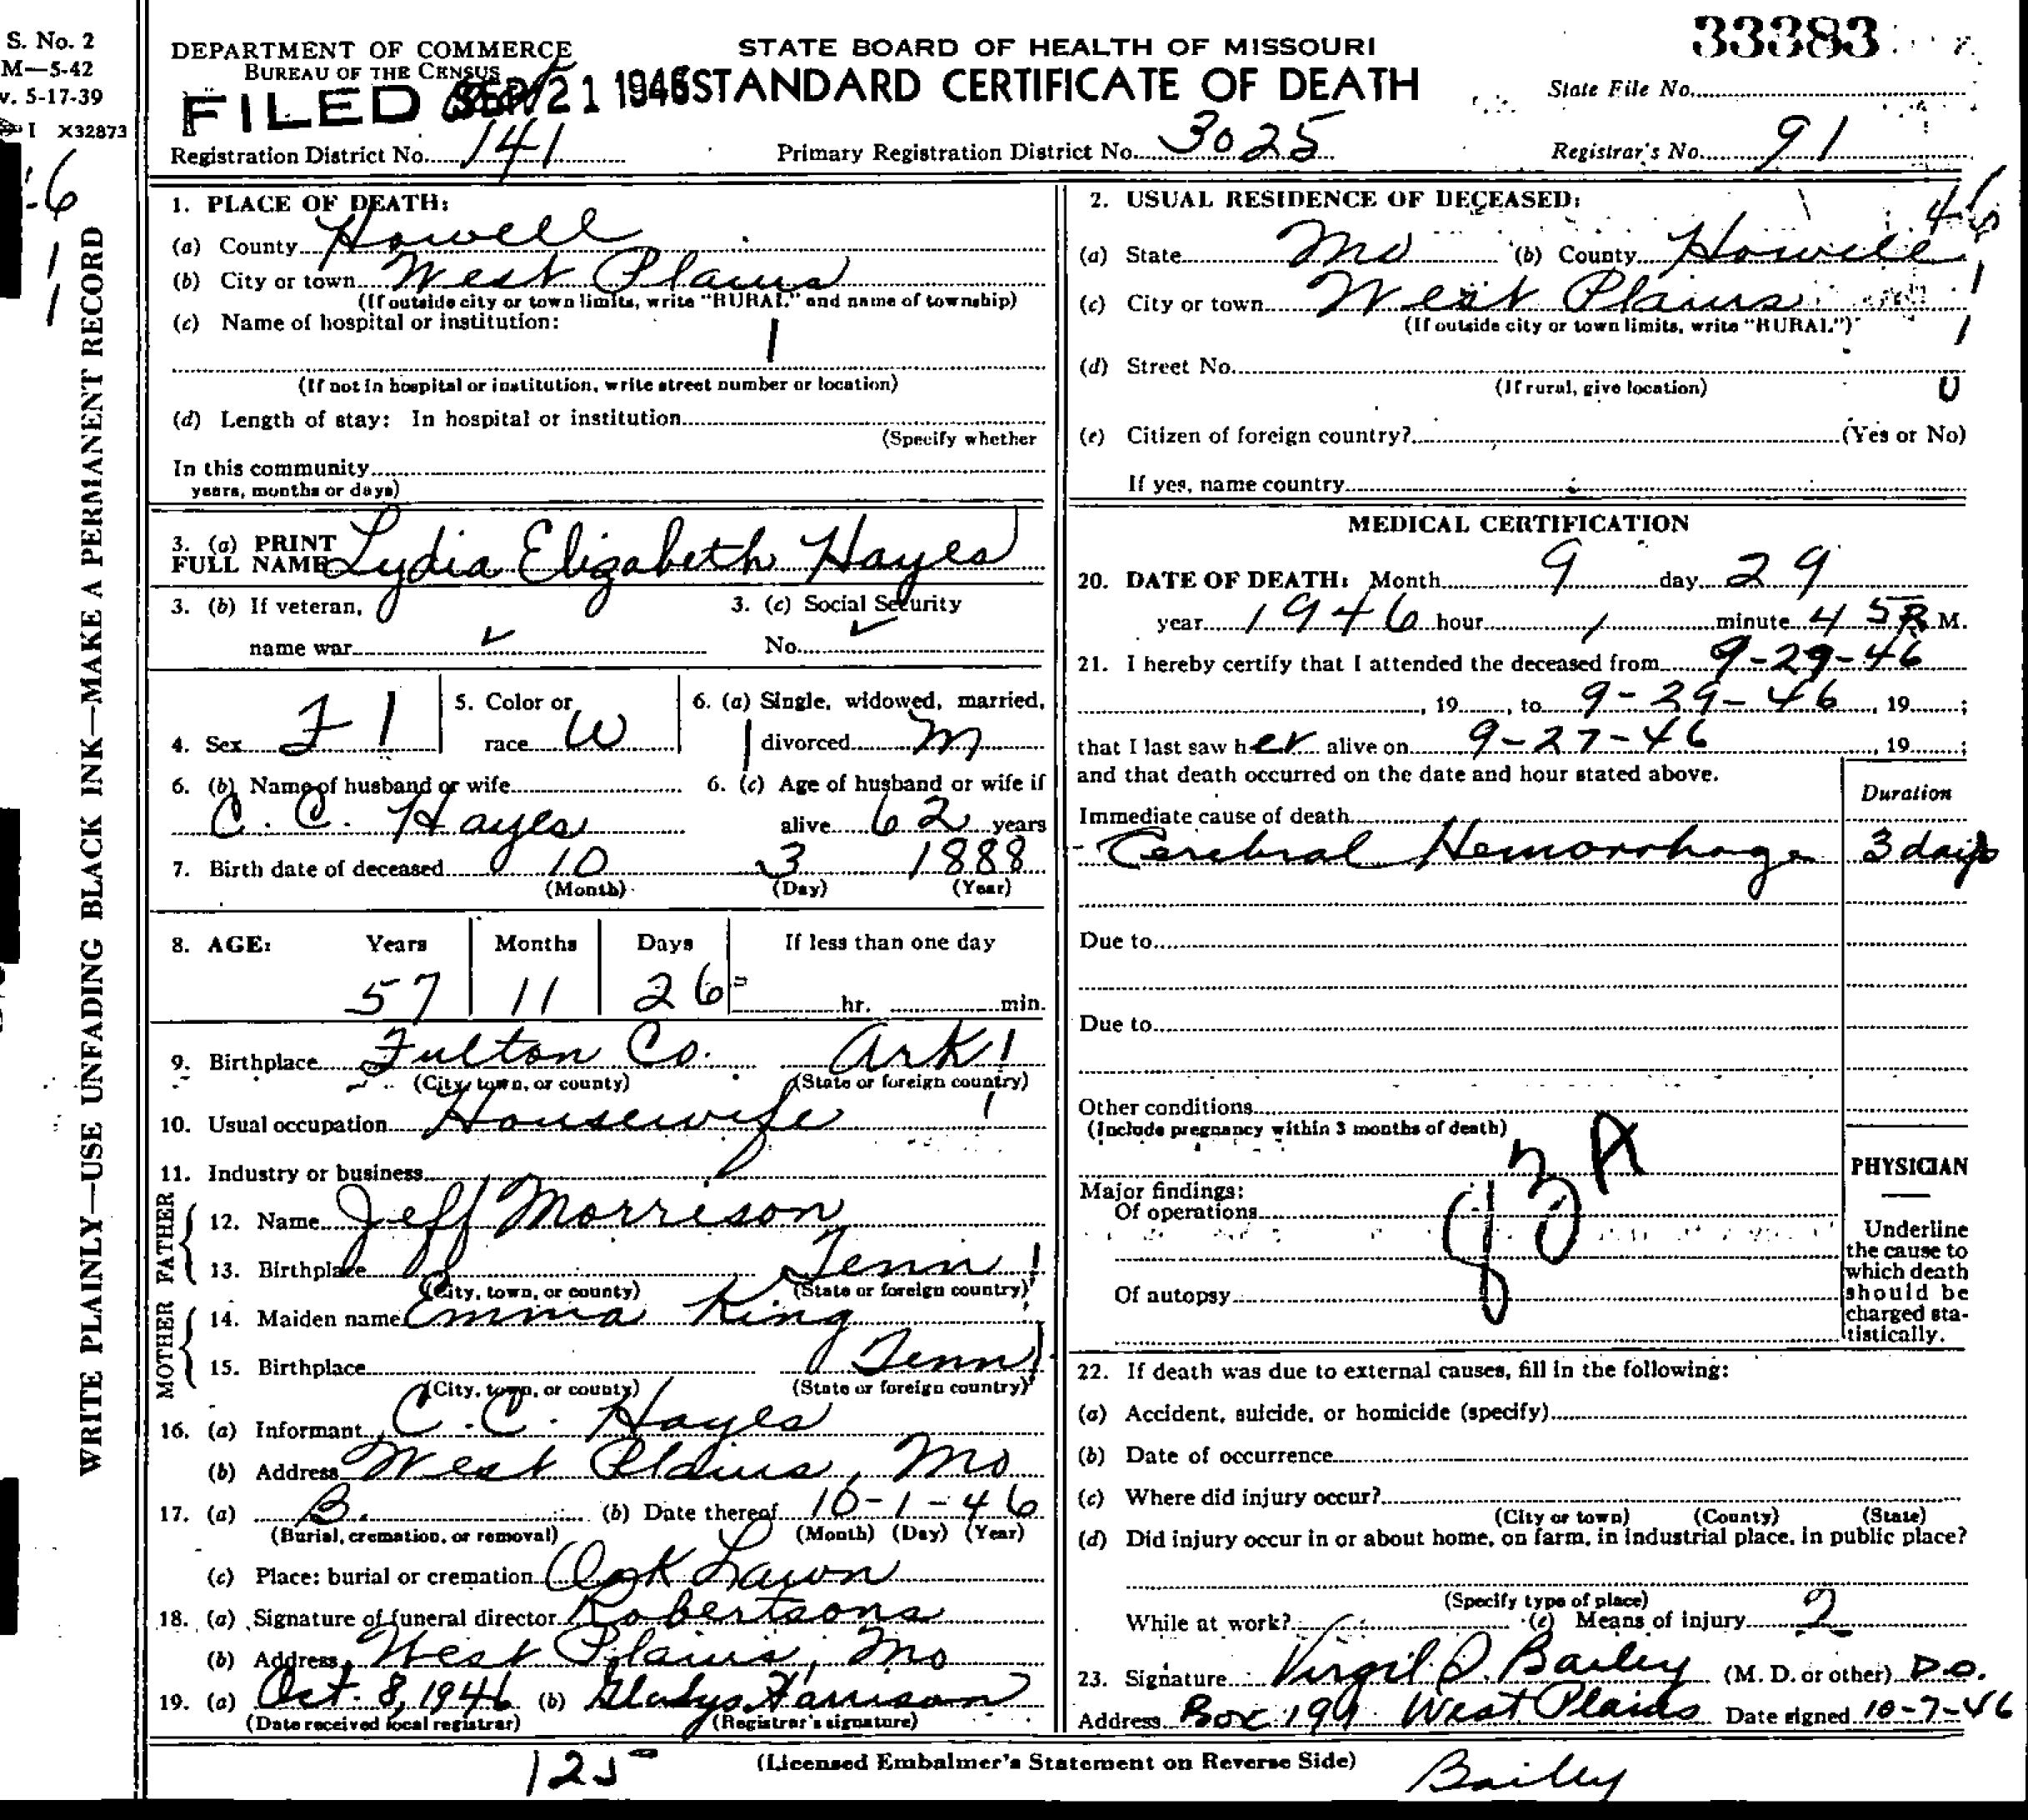 S. No. 2
M—5-42
v. 5-17-39
I X32873
WRITE PLAINLY—USE UNFADING BLACK INK—MAKE A PERMANENT RECORD
33383
DEPARTMENT OF COMMERCE
BUREAU OF THE CENSUS
STATE BOARD OF HEALTH OF MISSOURI
FILED 21 1946 STANDARD CERTIFICATE OF DEATH
State File No.
Registration District No. 141 Primary Registration District No. 3025 Registrar's No. 91
1. PLACE OF DEATH:
(a) County Howell
(b) City or town West Plains
(If outside city or town limits, write "RURAL" and name of township)
(c) Name of hospital or institution:
1
(If not in hospital or institution, write street number or location)
(d) Length of stay: In hospital or institution
(Specify whether
In this community
years, months or days)
3. (a) PRINT
FULL NAME Lydia Elizabeth Hayes
3. (b) If veteran, 3. (c) Social Security
name war ✓ No. ✓
4. Sex F 1 5. Color or race W 6. (a) Single, widowed, married, divorced M
6. (b) Name of husband or wife 6. (c) Age of husband or wife if
C. C. Hayes alive 62 years
7. Birth date of deceased 10 3 1888
(Month) (Day) (Year)
8. AGE: Years Months Days If less than one day
57 11 26 hr. min.
9. Birthplace Fulton Co. Ark 1
(City, town, or county) (State or foreign country)
10. Usual occupation Housewife
11. Industry or business
FATHER
12. Name Jeff Morrison
13. Birthplace Tenn 1
(City, town, or county) (State or foreign country)
MOTHER
14. Maiden name Emma King
15. Birthplace Tenn 1
(City, town, or county) (State or foreign country)
16. (a) Informant C. C. Hayes
(b) Address West Plains, Mo
17. (a) B. (b) Date thereof 10-1-46
(Burial, cremation, or removal) (Month) (Day) (Year)
(c) Place: burial or cremation Oak Lawn
18. (a) Signature of funeral director Robertsons
(b) Address West Plains, Mo
19. (a) Oct. 8, 1946 (b) Gladys Harrison
(Date received local registrar) (Registrar's signature)
2. USUAL RESIDENCE OF DECEASED:
46
(a) State Mo (b) County Howell
(c) City or town West Plains
(If outside city or town limits, write "RURAL")
(d) Street No.
(If rural, give location)
0
(e) Citizen of foreign country? (Yes or No)
If yes, name country
MEDICAL CERTIFICATION
20. DATE OF DEATH: Month 9 day 29
year 1946 hour 1 minute 45 P. M.
21. I hereby certify that I attended the deceased from 9-29-46
, 19 , to 9-29-46, 19 ;
that I last saw her alive on 9-27-46, 19 ;
and that death occurred on the date and hour stated above.
Duration
Immediate cause of death
Cerebral Hemorrhage 3 days
Due to
Due to
Other conditions
(Include pregnancy within 3 months of death)
83A
PHYSICIAN
Major findings:
Of operations
Of autopsy
Underline
the cause to
which death
should be
charged sta-
tistically.
22. If death was due to external causes, fill in the following:
(a) Accident, suicide, or homicide (specify)
(b) Date of occurrence
(c) Where did injury occur?
(City or town) (County) (State)
(d) Did injury occur in or about home, on farm, in industrial place, in public place?
(Specify type of place)
While at work? (e) Means of injury 2
23. Signature Virgil D. Bailey (M. D. or other) D.O.
Address Box 191 West Plains Date signed 10-7-46
125 (Licensed Embalmer's Statement on Reverse Side) Bailey